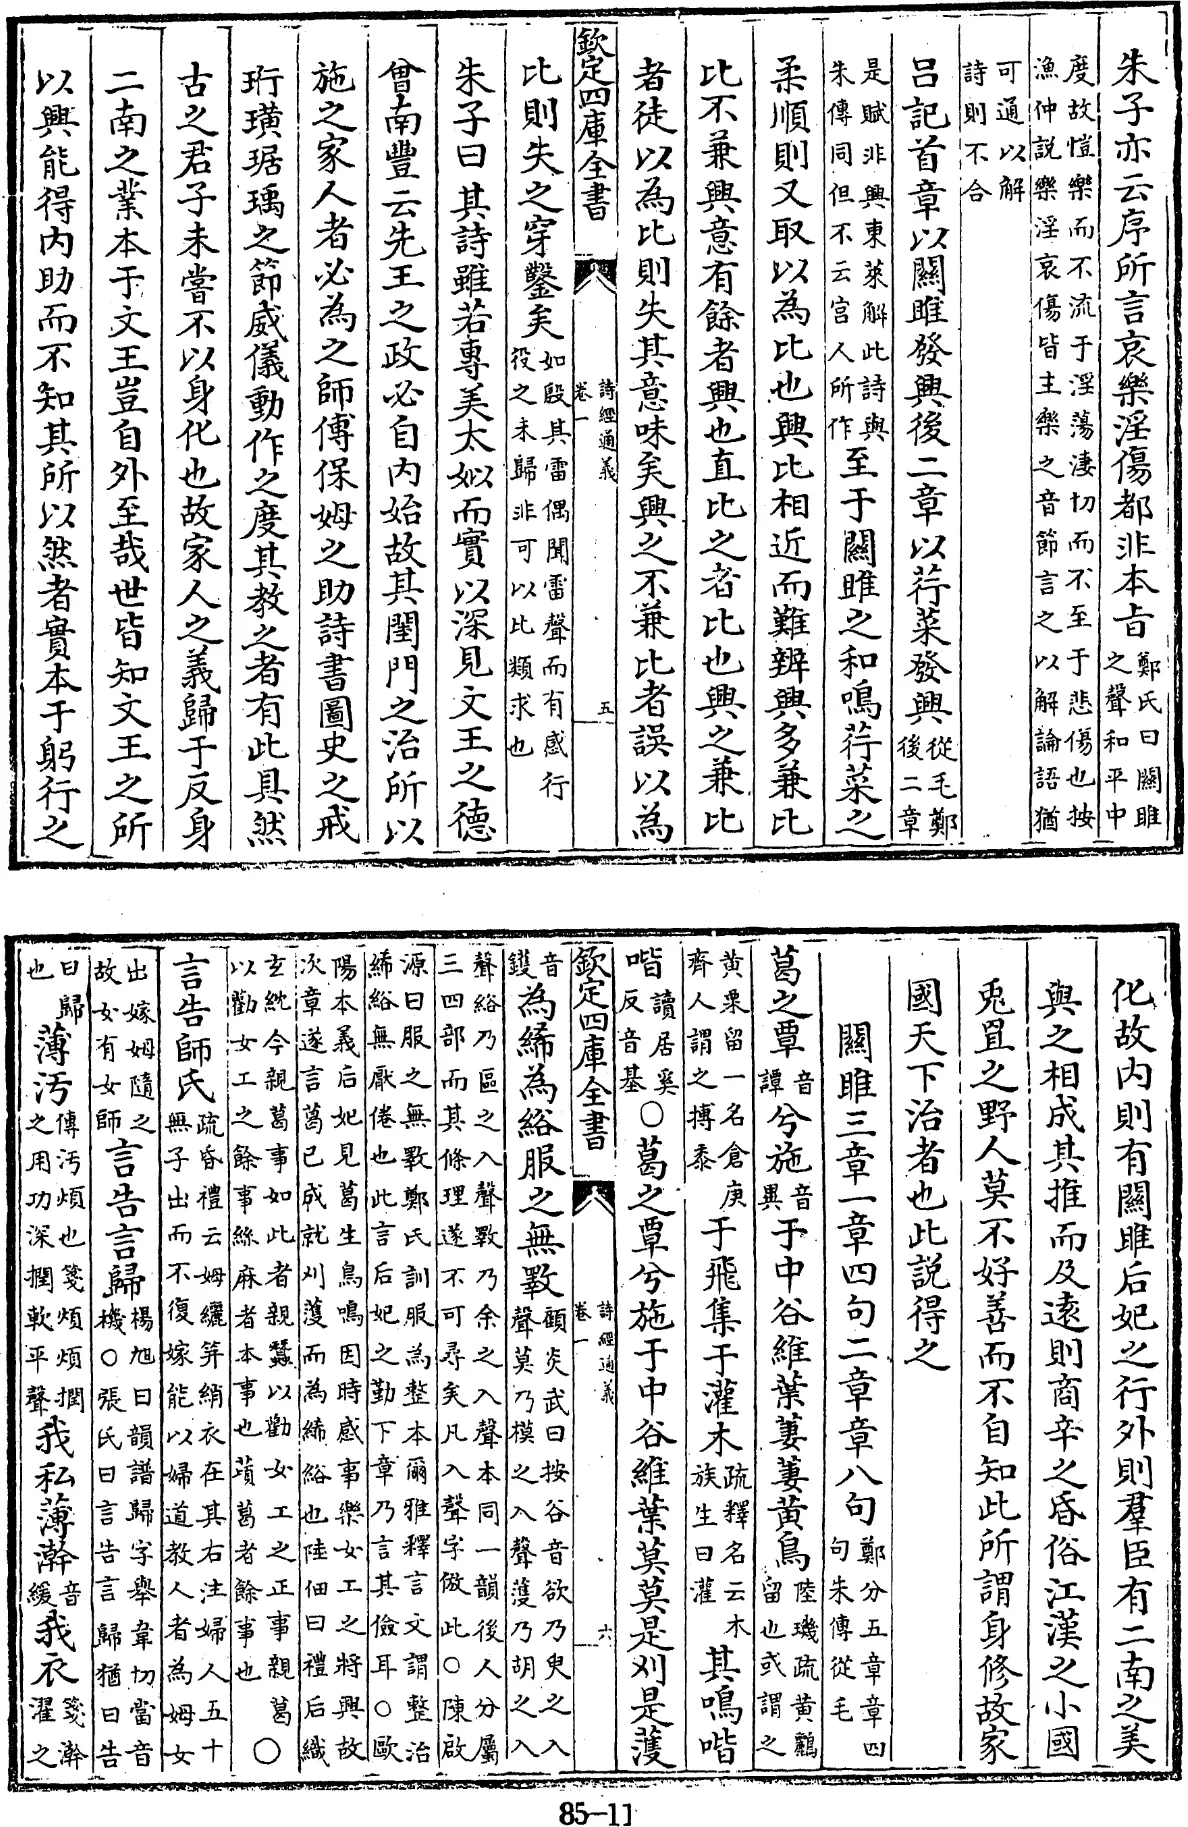 朱子亦云序所言哀樂淫傷都非本旨鄭氏曰關雎之聲和平中
度故愷樂而不流于淫蕩淒切而不至于悲傷也按漁仲説樂淫哀傷皆主樂之音節言之以解論語猶
可通以解詩則不合
吕記首章以關雎發興後二章以荇菜發興從毛鄭後二章
是賦非興東萊解此詩與朱傳同但不云宫人所作至于關雎之和鳴荇菜之
柔順則又取以為比也興比相近而難辨興多兼比
比不兼興意有餘者興也直比之者比也興之兼比
者徒以為比則失其意味矣興之不兼比者誤以為
欽定四庫全書
詩經通義
卷一
五
比則失之穿鑿矣如殷其雷偶聞雷聲而有感行役之未歸非可以比類求也
朱子曰其詩雖若專美太姒而實以深見文王之德
曾南豐云先王之政必自内始故其閨門之治所以
施之家人者必為之師傅保姆之助詩書圖史之戒
珩璜琚瑀之節威儀動作之度其教之者有此具然
古之君子未嘗不以身化也故家人之義歸于反身
二南之業本于文王豈自外至哉世皆知文王之所
以興能得内助而不知其所以然者實本于躬行之
化故内則有關雎后妃之行外則羣臣有二南之美
與之相成其推而及逺則商辛之昏俗江漢之小國
兎罝之野人莫不好善而不自知此所謂身修故家
國天下治者也此説得之
關雎三章一章四句二章章八句鄭分五章章四句朱傳從毛
葛之覃音譚兮施音異于中谷維葉萋萋黄鳥陸璣疏黄鸝留也或謂之
黄栗留一名倉庚齊人謂之搏黍于飛集于灌木疏釋名云木族生曰灌其鳴喈
喈讀居奚反音基〇葛之覃兮施于中谷維葉莫莫是刈是濩
欽定四庫全書
詩經通義
卷一
六
音鑊為絺為綌服之無斁顧炎武曰按谷音欲乃臾之入聲莫乃模之入聲濩乃胡之入
聲綌乃區之入聲斁乃余之入聲本同一韻後人分屬三四部而其條理遂不可尋矣凡入聲字倣此〇陳啟
源曰服之無斁鄭氏訓服為整本爾雅釋言文謂整治絺綌無厭倦也此言后妃之勤下章乃言其儉耳〇歐
陽本義后妃見葛生鳥鳴因時感事樂女工之將興故次章遂言葛已成就刈濩而為絺綌也陸佃曰禮后織
玄紞今親葛事如此者親蠶以勸女工之正事親葛以勸女工之餘事絲麻者本事也蕡葛者餘事也〇
言告師氏疏昏禮云姆纚笄綃衣在其右注婦人五十無子出而不復嫁能以婦道教人者為姆女
出嫁姆隨之故女有女師言告言歸楊旭曰韻譜歸字舉韋切當音機〇張氏曰言告言歸猶曰告
曰歸也薄汚傳汚煩也箋煩煩撋之用功深撋軟平聲我私薄澣音緩我衣箋澣濯之
85-11